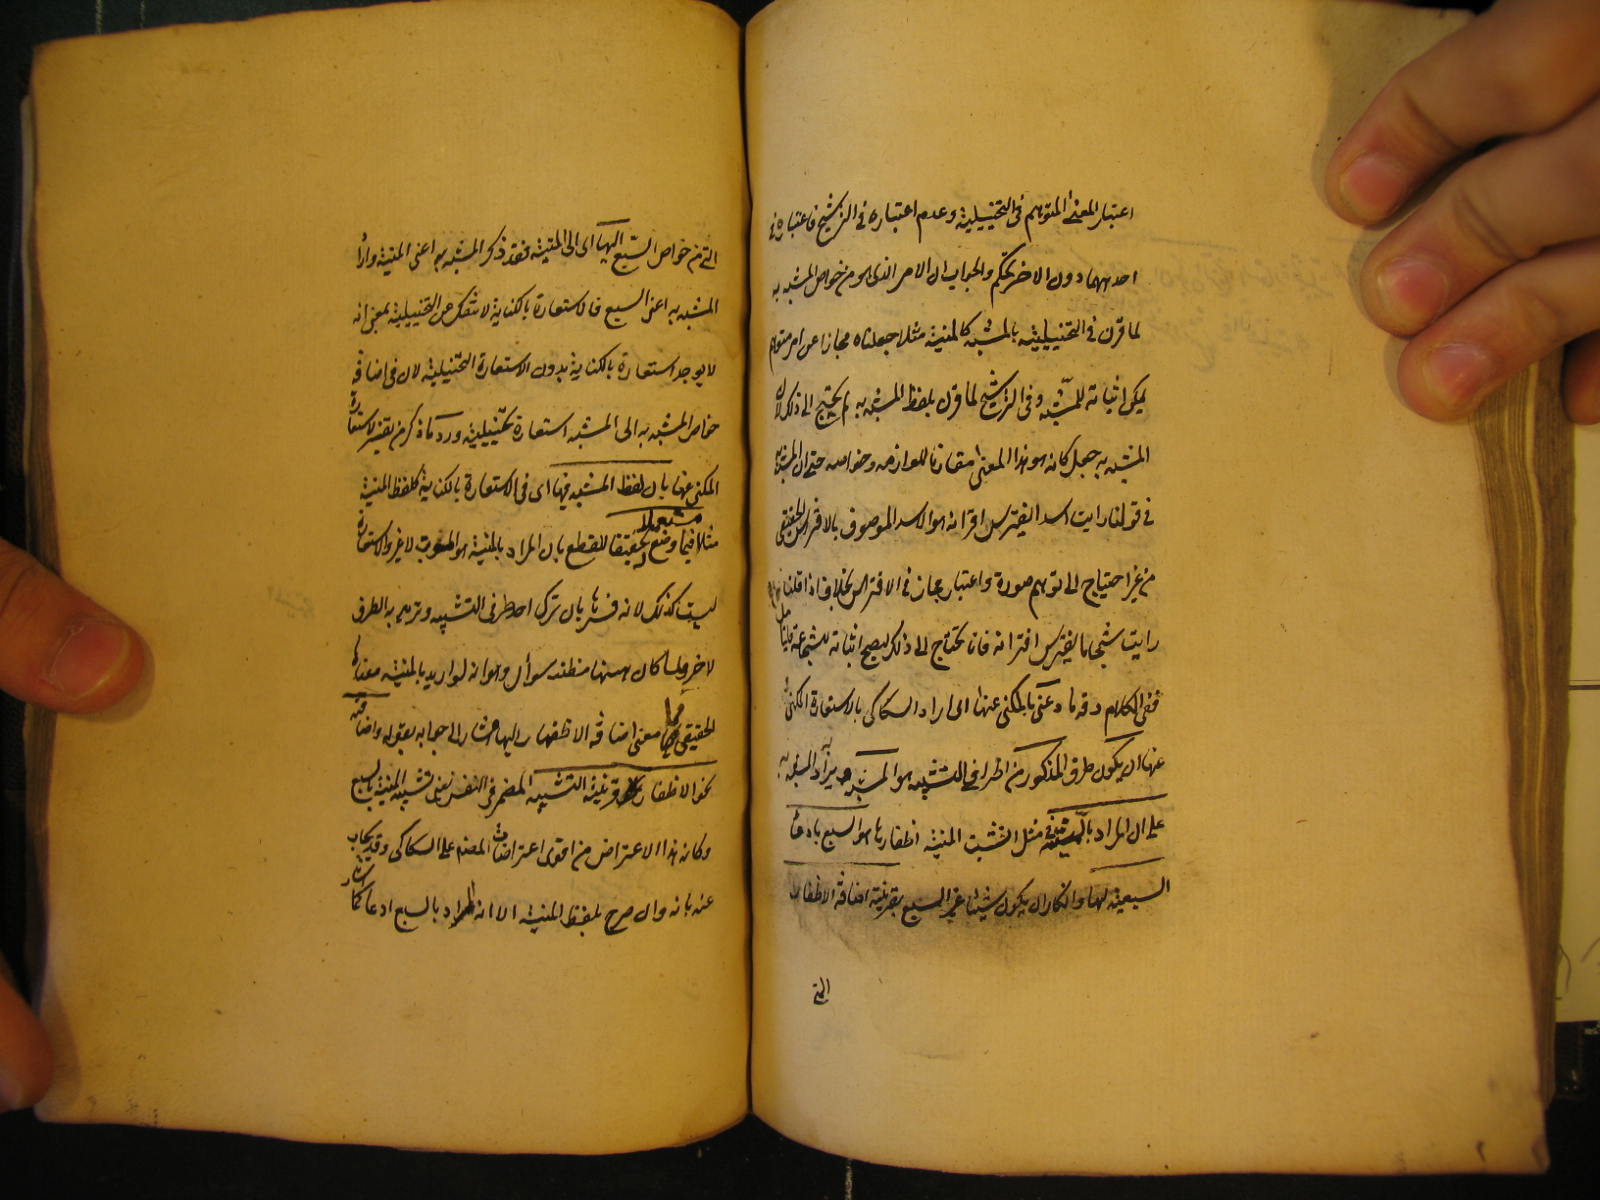 اعتبار المعنى المتوهم فى التخييلية وعدم اعتباره فى الترشيح فاعتباره فى
احدهما دون الاخر تحكم والجواب ان الامر الذى هو من خواص المشبه به
لما قرن فى التخييلية بالمشبه كالمنية مثلا جعلناه مجازا عن امر متوهم
يمكن اثباته للمشبه وفى الترشيح لما قرن بلفظ المشبه به لم يحتج الى ذلك لان
المشبه به جعل كانه هو هذا المعنى مقارنا للوازمه وخواصه حتى ان المشبه به
فى قولنا رايت اسدا يفترس اقرانه هو الاسد الموصوف بالافتراس الحقيقى
من غير احتياج الى توهم صورة واعتبار مجاز فى الافتراس بخلاف ما اذا قلنا
رايت شجاعا يفترس اقرانه فانا نحتاج الى ذلك ليصح اثباته للشجاع فليتامل
ففى الكلام دقة ما وعنى بالمكنى عنها اى اراد السكاكى بالاستعارة المكنى
عنها ان يكون طرف المذكور من طرفى التشبيه هو المشبه ويراد المشبه به
على ان المراد بالمنية فى مثل انشبت المنية اظفارها هو السبع بادعاء
السبعية لها وانكار ان يكون شيئا غير السبع بقرينة اضافة الاظفار
التى
التى من خواص السبع اليها اى الى المنية فقد ذكر المشبه به اعنى المنية واراد
المشبه به اعنى السبع فالاستعارة بالكناية لا تنفك عن التخييلية بمعنى انه
لا يوجد استعارة بالكناية بدون الاستعارة التخييلية لان فى اضافة
خواص المشبه به الى المشبه استعارة تخييلية ورد ما ذكر من تفسير الاستعارة
المكنى عنها بان لفظ المشبه فيها اى فى الاستعارة بالكناية كلفظ المنية
مستعملا
مثلا فيما وضع له تحقيقا للقطع بان المراد بالمنية هو الموت لا غير والاستعارة
ليست كذلك لانه فسرها بان تذكر احد طرفى التشبيه وتريد به الطرف
الاخر ولما كان ههنا مظنة سوأل وهو انه لو اريد بالمنية معناها
الحقيقى فما معنى اضافة الاظفار اليها اشار الى جوابه بقوله واضافة
نحو الاظفار قرينة التشبيه المضمر فى النفس يعنى تشبيه المنية بالسبع
وكان هذا الاعتراض من اقوى اعتراضات المصنف على السكاكى وقد يجاب
عنه بانه وان صرح بلفظ المنية الا ان المراد بالسبع ادعاء كما اشار